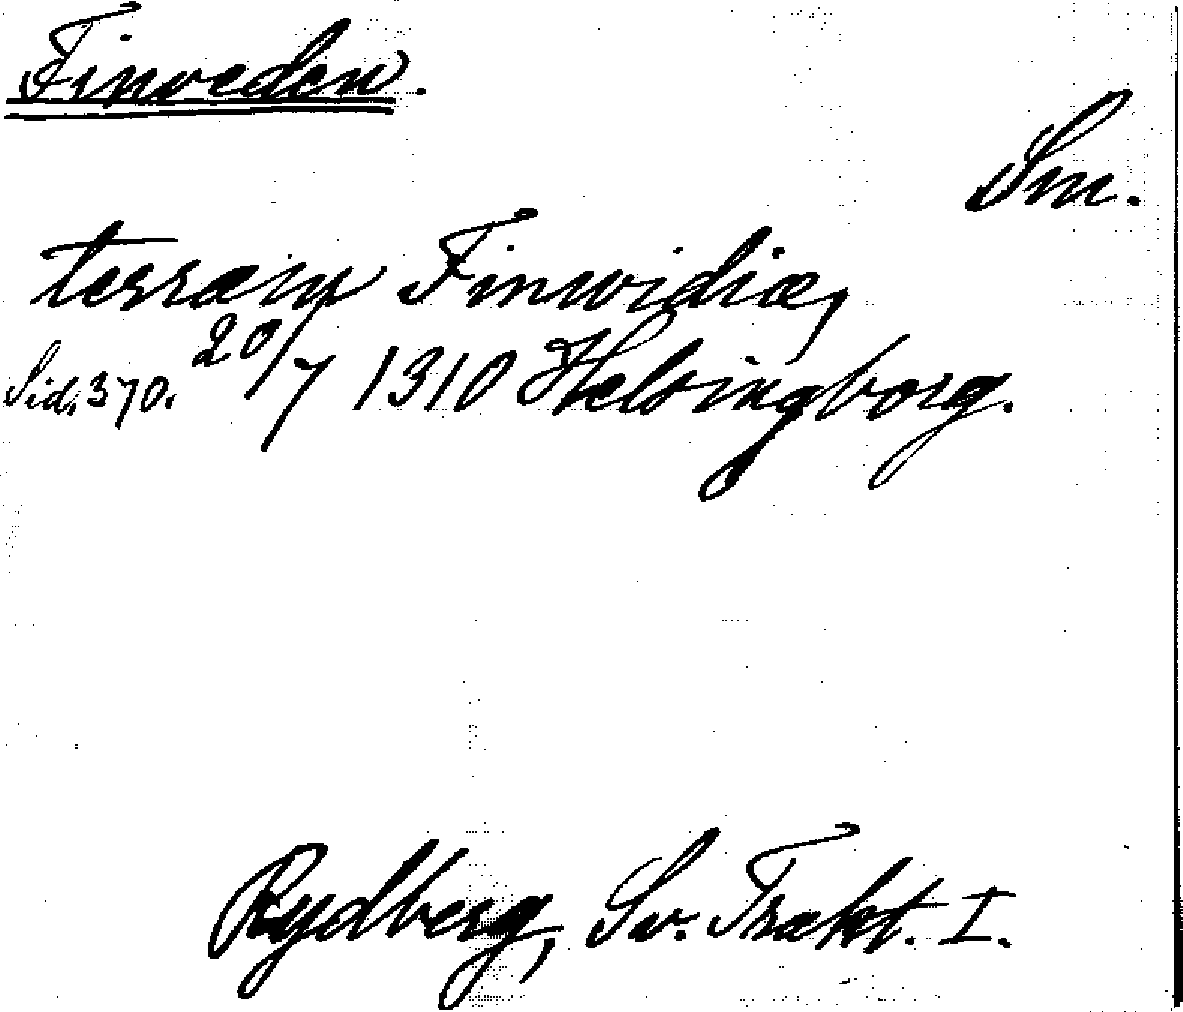 Finveden.
Sm.
terram Finwidie,
Sid. 370. 20/7 1310 Helsingborg.
Rydberg, Sv. Trakt. I.